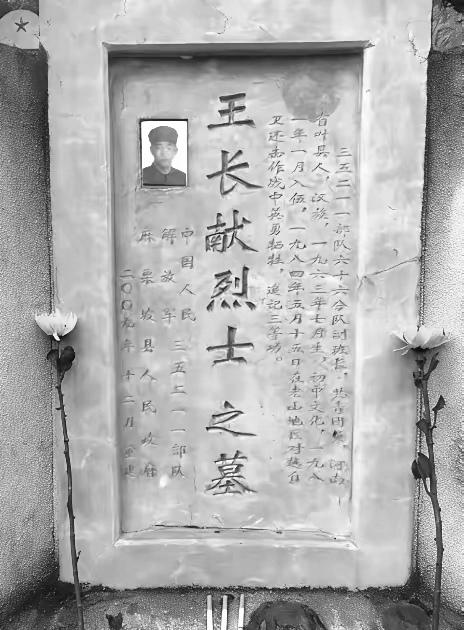 三五二一一部队六十六分队副班长，共青团员，河南
省叶县人，汉族，一九六三年七月生，初中文化，一九八
一年一月入伍，一九八四年五月十五日在老山地区对越自
卫还击作战中英勇牺牲，追记三等功。
王长献烈士之墓
中国人民 三五二一一部队
解放军
麻栗坡县人民政府
二〇〇九年十二月重建